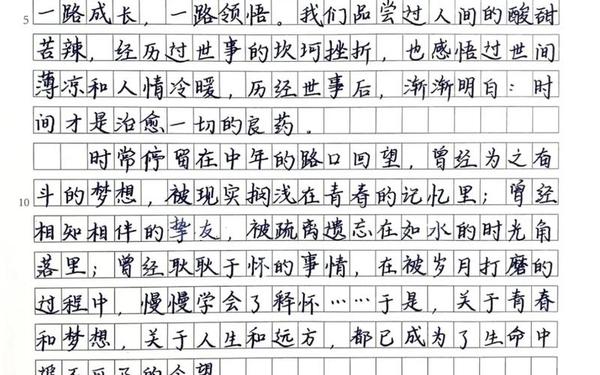 5 一路成长，一路领悟。我们品尝过人间的酸甜
苦辣，经历过世事的坎坷挫折，也感悟过世间
薄凉和人情冷暖，历经世事后，渐渐明白：时
间才是治愈一切的良药。
时常停留在中年的路口回望，曾经为之奋
10 斗的梦想，被现实搁浅在青春的记忆里；曾经
相知相伴的挚友，被疏离遗忘在如水的时光角
落里；曾经耿耿于怀的事情，在被岁月打磨的
过程中，慢慢学会了释怀……于是，关于青春
和梦想，关于人生和远方，都已成为了生命中